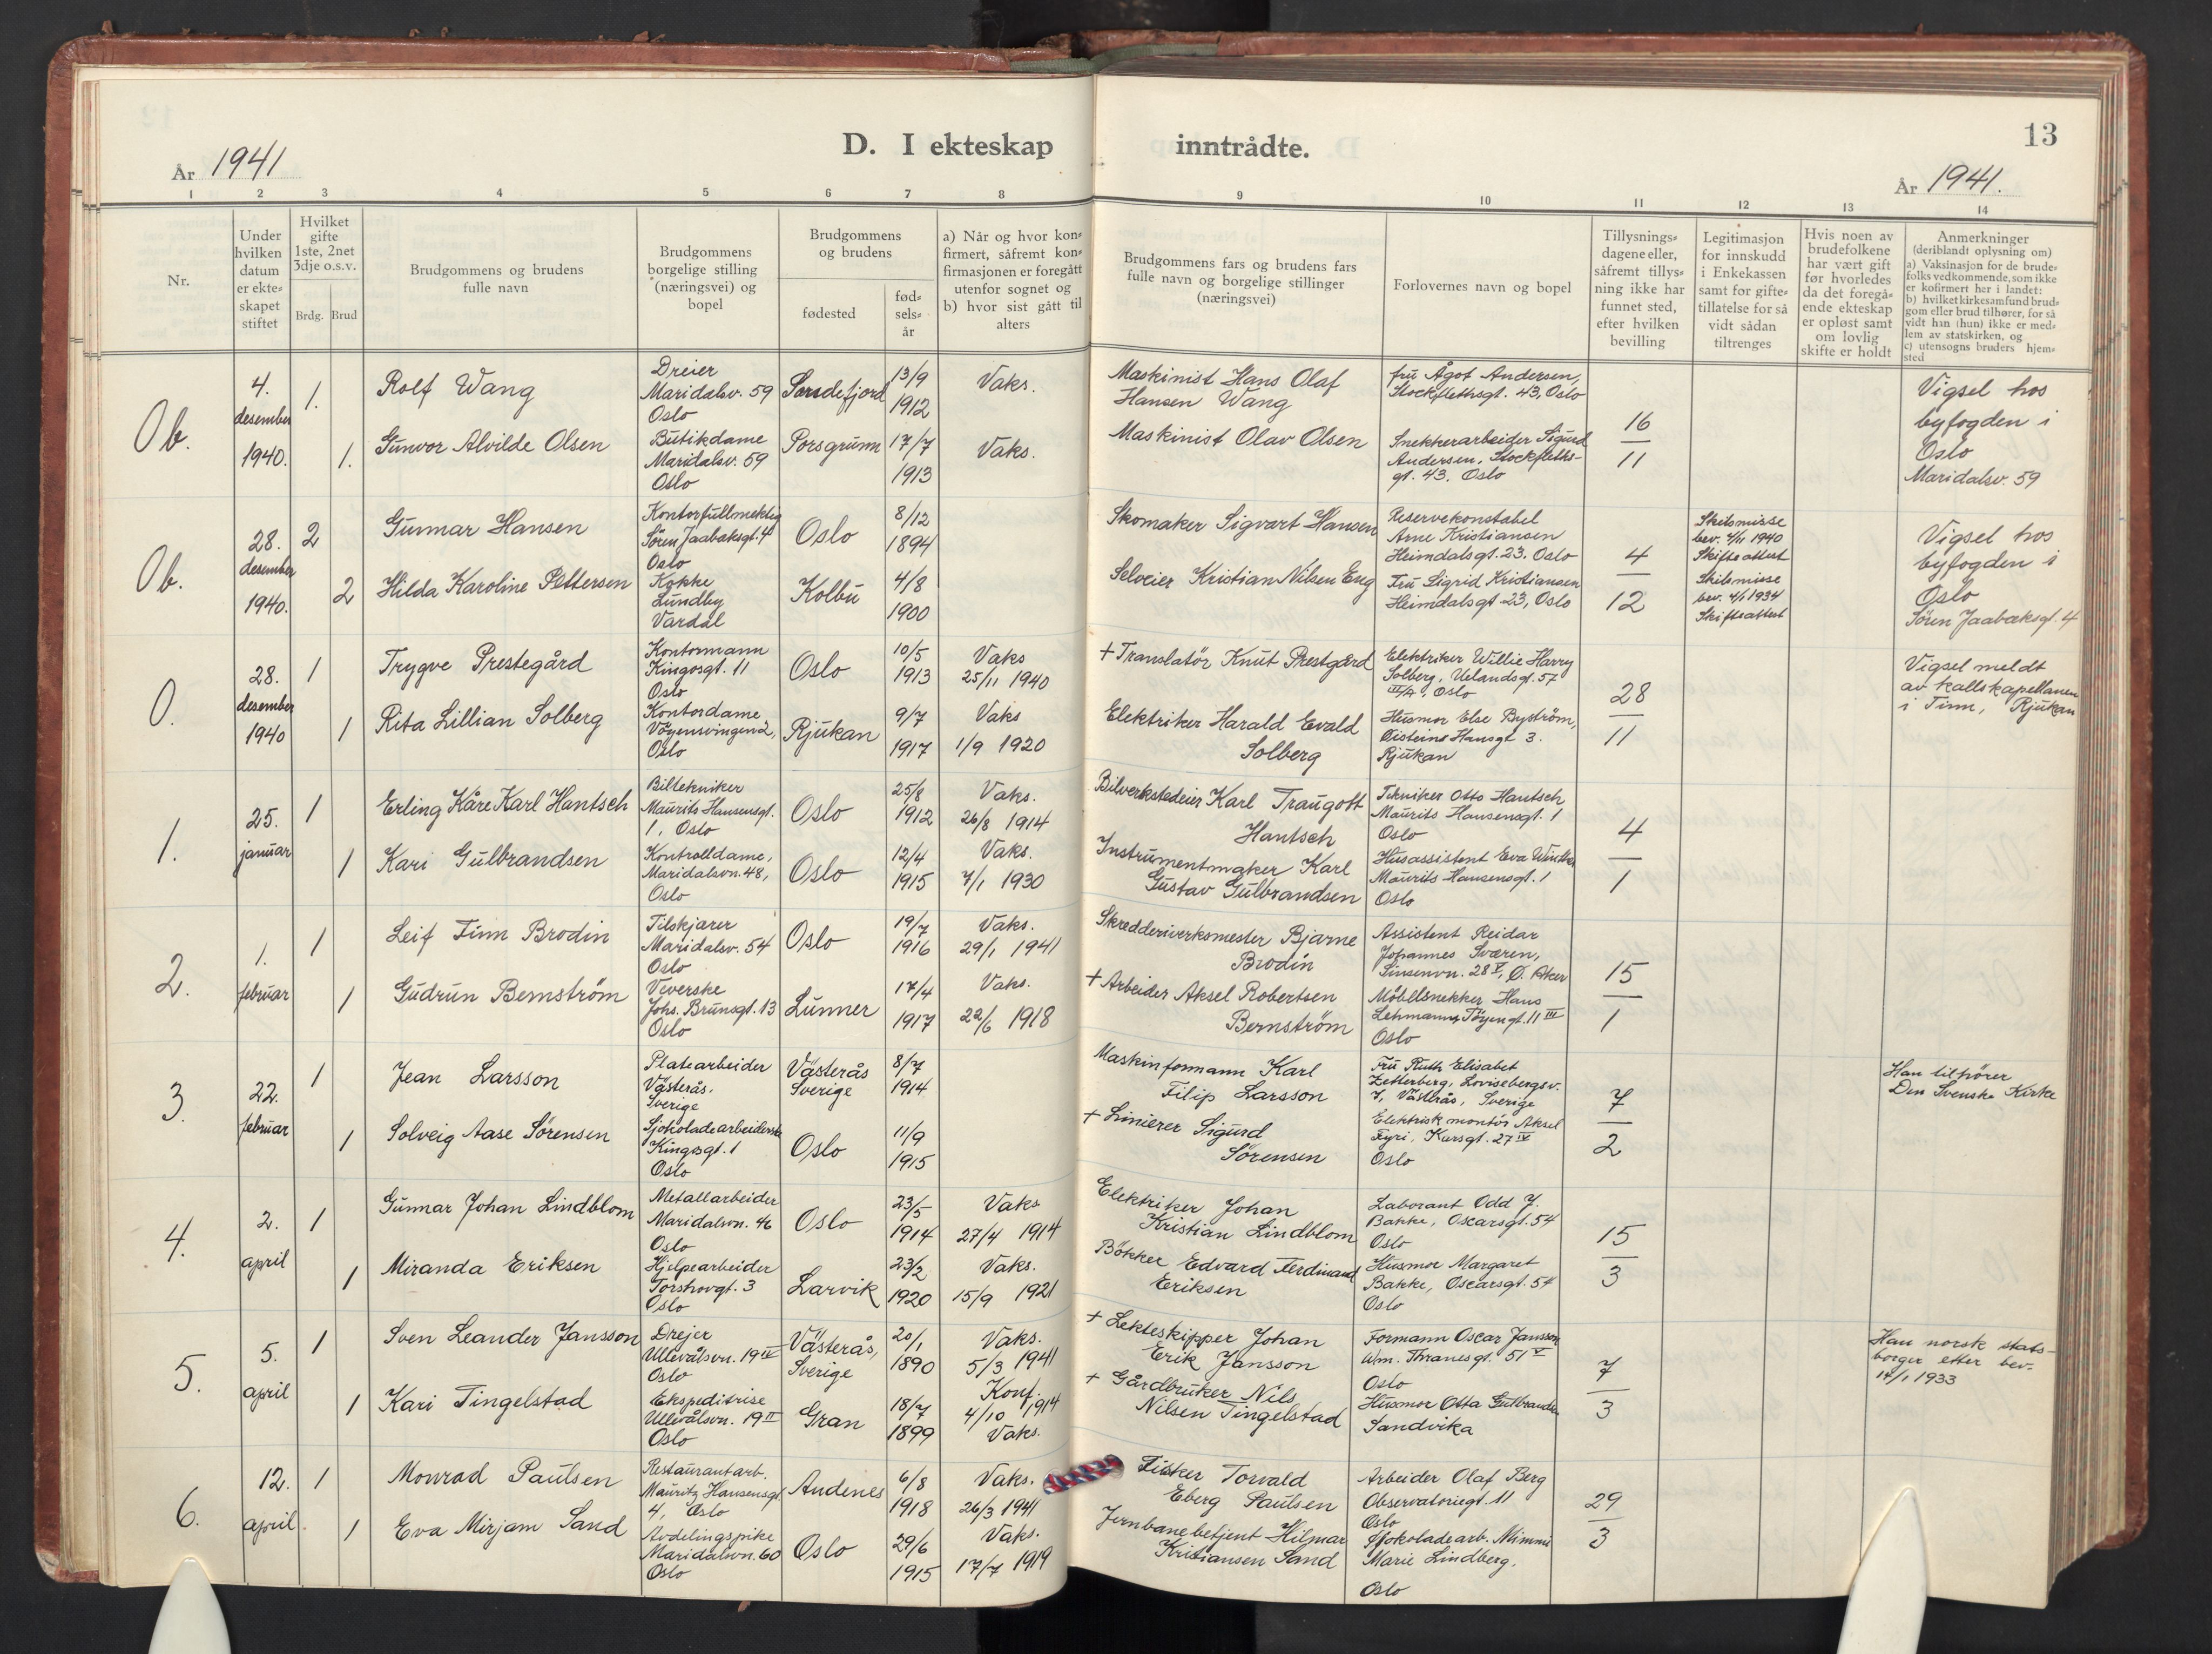 13
D. I ekteskap inntrådte.
År 1941
År 1941.
1 2 3 4 5 6 7 8 9 10 11 12 13 14
Nr.
Under
hvilken
datum
er ekte-
skapet
stiftet
Hvilket
gifte
1ste, 2net
3dje o.s.v.
Brdg. Brud
Brudgommens og brudens
fulle navn
Brudgommens
borgelige stilling
(næringsvei) og
bopel
Brudgommens
og brudens
fødested
fød-
sels-
år
a) Når og hvor kon-
firmert, såfremt kon-
firmasjonen er foregått
utenfor sognet og
b) hvor sist gått til
alters
Brudgommens fars og brudens fars
fulle navn og borgelige stillinger
(næringsvei)
Forlovernes navn og bopel
Tillysnings-
dagene eller,
såfremt tillys-
ning ikke har
funnet sted,
efter hvilken
bevilling
Legitimasjon
for innskudd
i Enkekassen
samt for gifte-
tillatelse for så
vidt sådan
tiltrenges
Hvis noen av
brudefolkene
har vært gift
før hvorledes
da det foregå-
ende ekteskap
er opløst samt
om lovlig
skifte er holdt
Anmerkninger
(deriblandt oplysning om)
a) Vaksinasjon for de brude-
folks vedkommende, som ikke
er kofirmert her i landet:
b) hvilket kirkesamfund brud-
gom eller brud tilhører, for så
vidt han (hun) ikke er med-
lem av statskirken, og
c) utensogns bruders hjem-
sted
0b.
4.
desember
1940.
1.
Rolf Wang
Dreier
Maridalsv. 59
Oslo
Sandefjord
13/9
1912
Vaks.
Maskinist Hans Olaf
Hansen Wang
fru Ågot Andersen,
Stockflethsgt. 43, Oslo
16
11
Vigsel hos
byfogden i
Oslo
Maridalsv. 59
1.
Gunvor Alvilde Olsen
Butikdame
Maridalsv. 59
Oslo
Porsgrunn
17/7
1913
Vaks.
Maskinist Olav Olsen
Snekkerarbeider Sigurd
Andersen, Stockfleths-
gt. 43. Oslo
0b.
28.
desember
1940.
2
Gunnar Hansen
Kontorfullmektig
Søren Jaabæksgt. 4
Oslo
Oslo
8/12
1894
Skomaker Sigvart Hansen
Reservekonstabel
Arne Kristiansen
Heimdalsgt. 23. Oslo
4
12
Skilsmisse
bev. 4/11 1940
Skifteattest
Vigsel hos
byfogden i
Oslo
Søren Jaabæksgt. 4
2
Hilda Karoline Pettersen
Kokke
Lundby
Vardal
Kolbu
4/8
1900
Selveier Kristian Nilsen Eng
Fru Sigrid Kristiansen
Heimdalsgt 23, Oslo
Skilsmisse
bev. 4/1 1934
Skifteattest
0.
28.
desember
1940
1
Trygve Prestegård
Kontormann
Kingosgt. 11
Oslo
Oslo
10/5
1913
Vaks
25/11 1940
+ Translatör Knut Prestgård
Elektriker Willie Harry
Solberg, Uelandsgt. 57
III/4, Oslo
28
11
Vigsel meldt
av kallskapellanen
i Tinn, Rjukan
1
Rita Lillian Solberg
Kontordame
Vøyensvingen 2,
Oslo
Rjukan
9/7
1917
Vaks
1/9 1920
Elektriker Harald Evald
Solberg
Husmor Else Byström,
Øisteins Hansgt 3.
Rjukan
1.
25.
januar
1
Erling Kåre Karl Hantsch
Biltekniker
Maurits Hansensgt.
1, Oslo
Oslo
25/8
1912
Vaks.
26/8 1914
Bilverkstedeier Karl Traugott
Hantsch
Tekniker Otto Hantsch
Maurits Hansensgt. 1
Oslo
4
1
1
Kari Gulbrandsen
Kontrolldame,
Maridalsvn. 48,
Oslo
Oslo
12/4
1915
Vaks.
7/1 1930
Instrumentmaker Karl
Gustav Gulbrandsen
Husassistent Eva Winther
Maurits Hansensgt. 1
Oslo
2.
1.
februar
1
Leif Finn Brodin
Tilskjærer
Maridalsv. 54
Oslo
Oslo
19/7
1916
Vaks.
29/1 1941
Skredderiverksmester Bjarne
Brodin
Assistent Reidar
Johannes Sværen,
Sinsenvn. 28 V, Ø. Aker
15
1
1
Gudrun Bernström
Veverske
Johs. Brunsgt. 13
Oslo
Lunner
17/4
1917
Vaks.
22/6 1918
+ Arbeider Aksel Robertsen
Bernström
Möbelsnekker Hans
Lehmann, Töyengt. 11 III
Oslo
3.
22.
februar
1
Jean Larsson
Platearbeider
Västerås.
Sverige
Västerås
Sverige
8/7
1914
Maskinformann Karl
Filip Larsson
Fru Ruth Elisabet
Zetterberg, Lovisebergsv.
7, Västerås, Sverige
7
2
Han tilhörer
Den Svenske Kirke
1
Solveig Aase Sørensen
Sjokoladearbeiderske
Kingosgt. 1
Oslo
Oslo
11/9
1915
+ Linierer Sigurd
Sørensen
Elektrisk montör Aksel
Fyri, Karsgt. 27 IV
Oslo
4.
2.
april
1
Gunnar Johan Lindblom
Metallarbeider
Maridalsvn. 46
Oslo
Oslo
23/5
1914
Vaks
27/4 1914
Elektriker Johan
Kristian Lindblom
Laborant Odd J.
Bakke, Oscarsgt. 54
Oslo
15
3
1
Miranda Eriksen
Hjelpearbeider
Torshovgt. 3
Oslo
Larvik
23/2
1920
Vaks.
15/9 1921
Bökker Edvard Ferdinand
Eriksen
Husmor Margaret
Bakke, Oscarsgt. 54
Oslo
5.
5.
april
1
Sven Leander Jansson
Drejer
Ullevålsvn. 19 IV
Oslo
Västerås,
Sverige
20/1
1890
Vaks.
5/3 1941
+ Lekteskipper Johan
Erik Jansson
Formann Oscar Jansson
Wm. Thranesgt. 51 V
Oslo
7
3
Han norsk stats-
borger etter bev.
17/1 1933
1
Kari Tingelstad
Ekspeditrise
Ullevålsvn. 19 II
Oslo
Gran
18/7
1899
Konf.
4/10 1914
Vaks.
+ Gårdbruker Nils
Nilsen Tingelstad
Husmor Otta Gulbrandsen
Sandvika
6.
12.
april
1
Monrad Paulsen
Restaurantarb.
Mauritz Hansensgt.
4, Oslo
Andenes
6/8
1918
Vaks.
26/3 1941
Fisker Torvald
Eberg Paulsen
Arbeider Olaf Berg
Observatoriegt. 11
Oslo
29
3
1
Eva Mirjam Sand
Avdelingspike
Maridalsvn. 60
Oslo
Oslo
29/6
1915
Vaks.
17/7 1919
Jernbanebetjent Hilmar
Kristiansen Sand
Sjokoladearb. Mimmi
Marie Lindberg.
Oslo